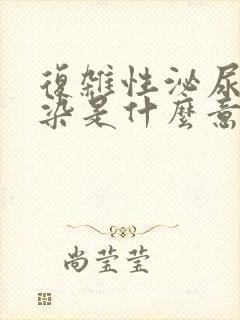 復雜性泌尿
染是什麼意
尚莹莹